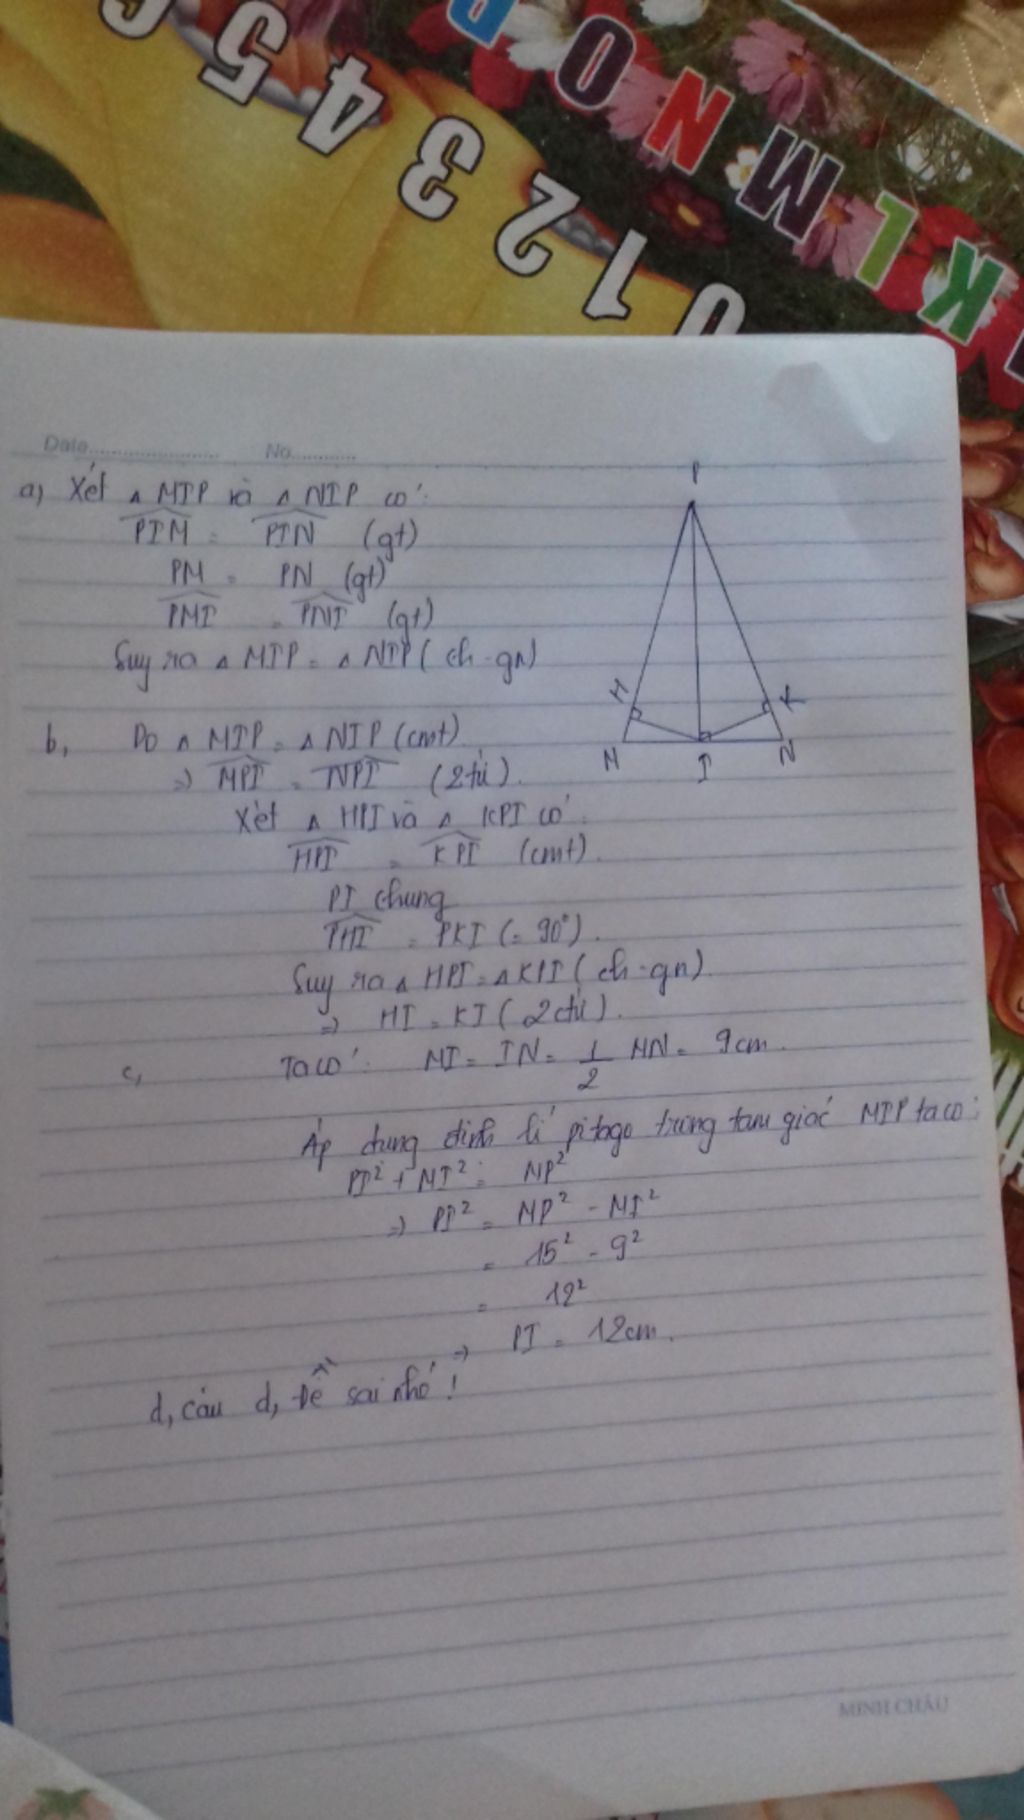 6 5 4 3 2 1 0
P O N M L K
Date.................... No............
a, Xét △ MIP và △ NIP có:
PIM = PIN (gt)
PM = PN (gt)
PMI = PNI (gt)
Suy ra △ MIP = △ NIP ( ch-gn)
b, Do △ MIP = △ NIP (cmt)
=> MPI = NPI (2 tứ).
Xét △ HPI và △ KPI có:
HPI = KPI (cmt).
PI chung
PHI = PKI (= 90°).
Suy ra △ HPI = △ KPI ( ch-gn).
=> HI = KI ( 2 ctứ).
c, Ta có: MI = IN = 1/2 MN = 9cm.
Áp dụng định lí pitago trong tam giác MIP ta có:
PI² + MI² = MP²
=> PI² = MP² - MI²
= 15² - 9²
= 12²
=> PI = 12cm.
d, câu d, đề sai nhá!
P
H
K
M
I
N
MINH CHÂU